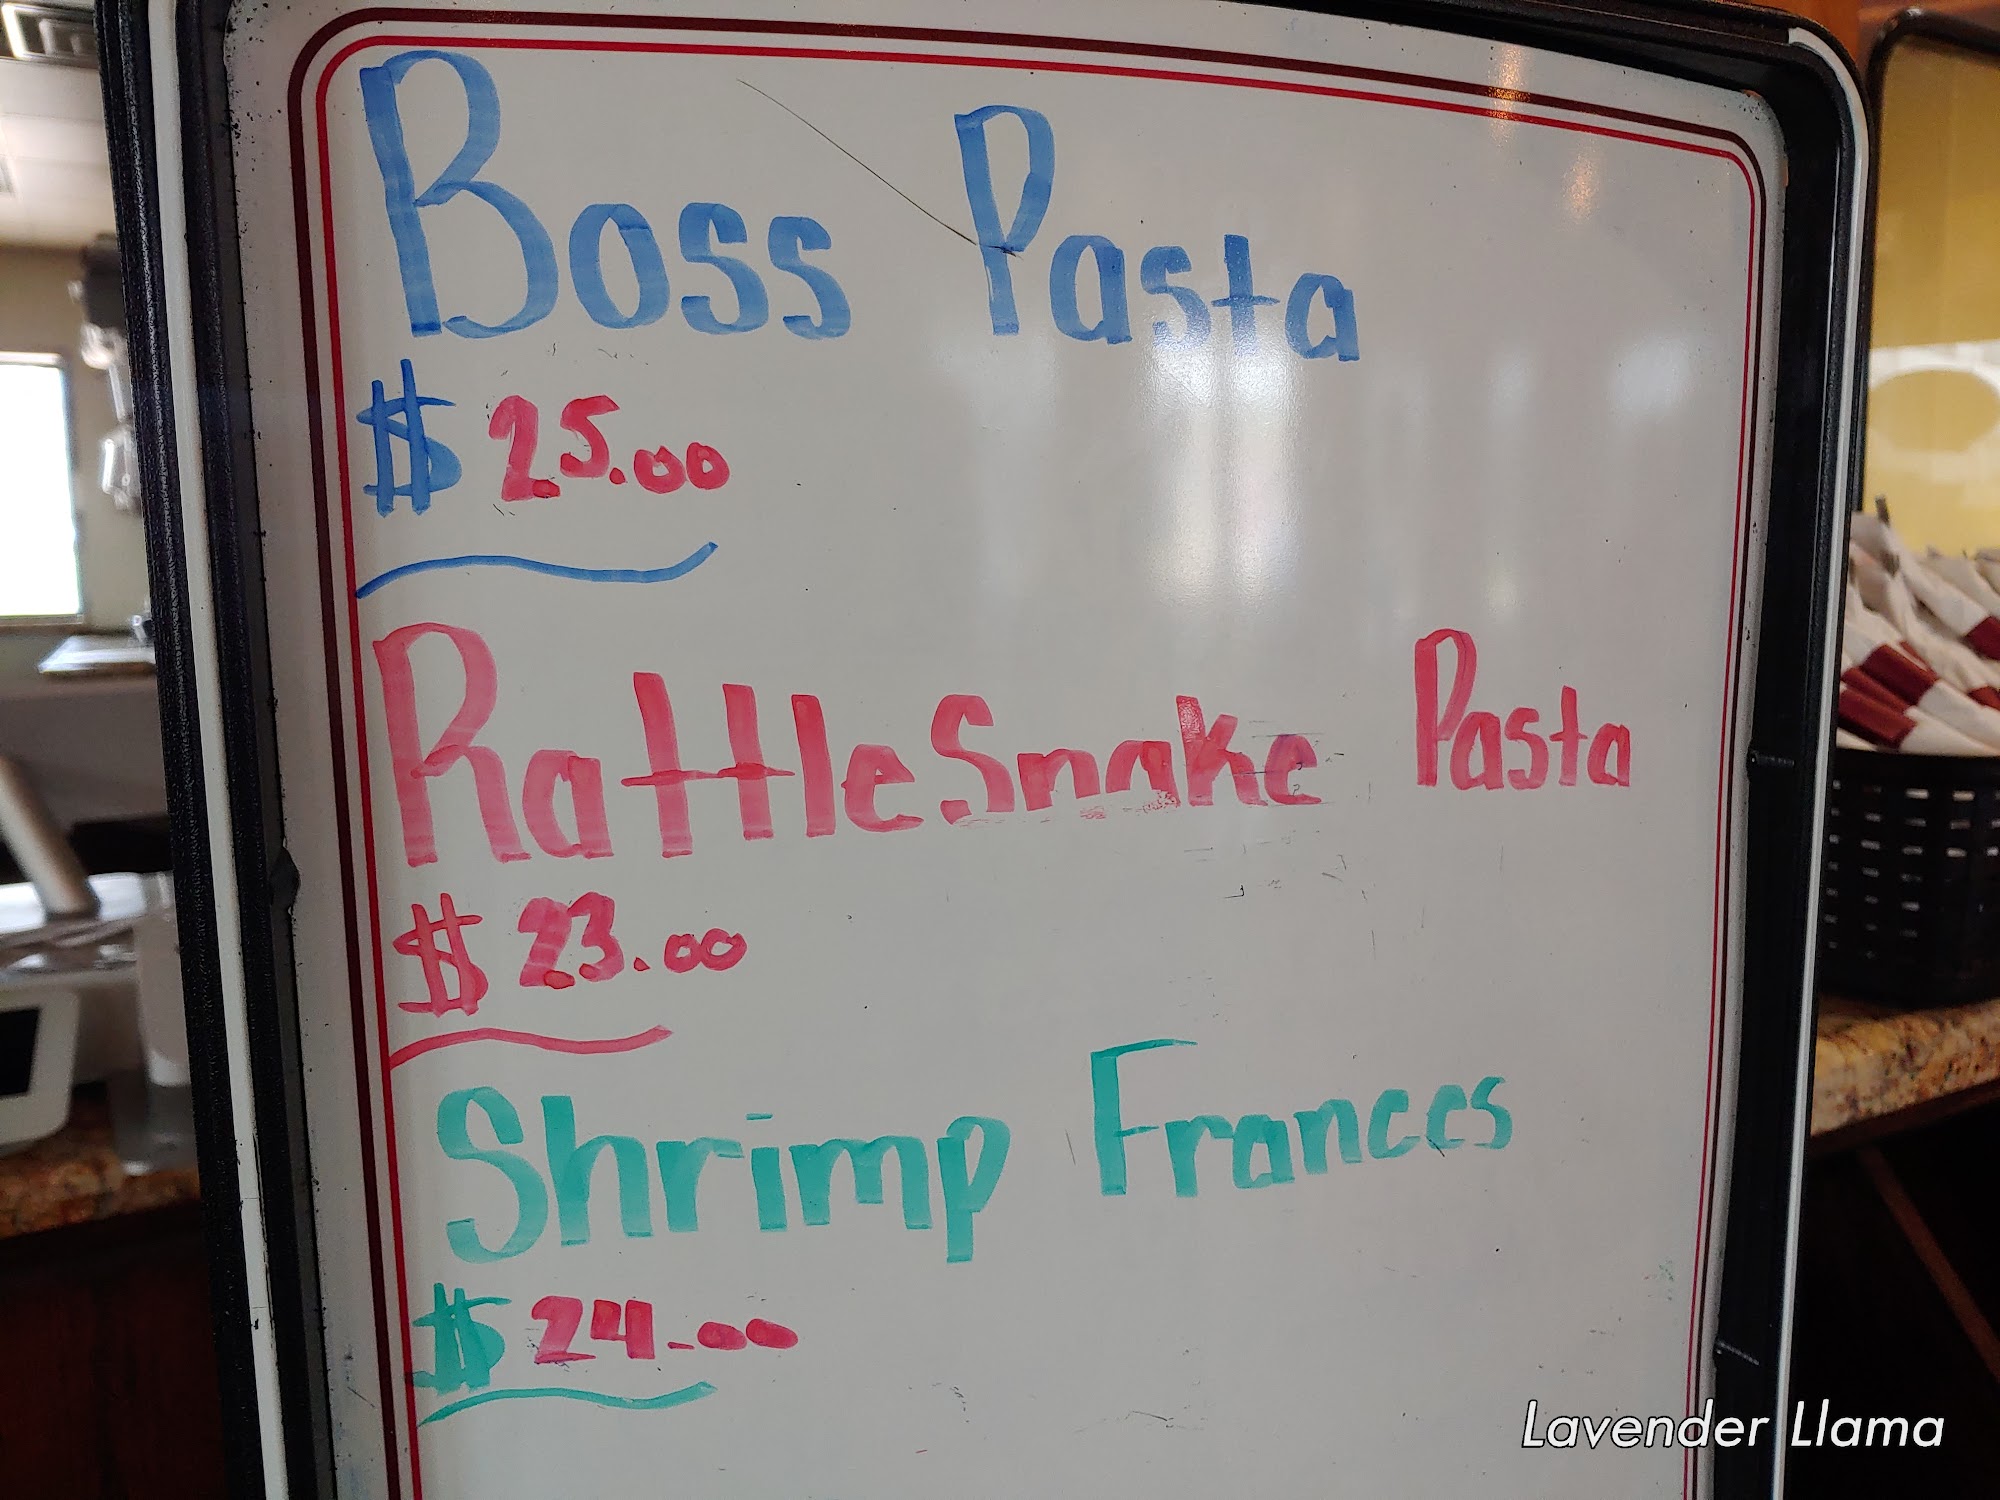 Boss Pasta
$ 25.00
RattleSnake Pasta
$ 23.00
Shrimp Frances
$ 24.00
Lavender Llama